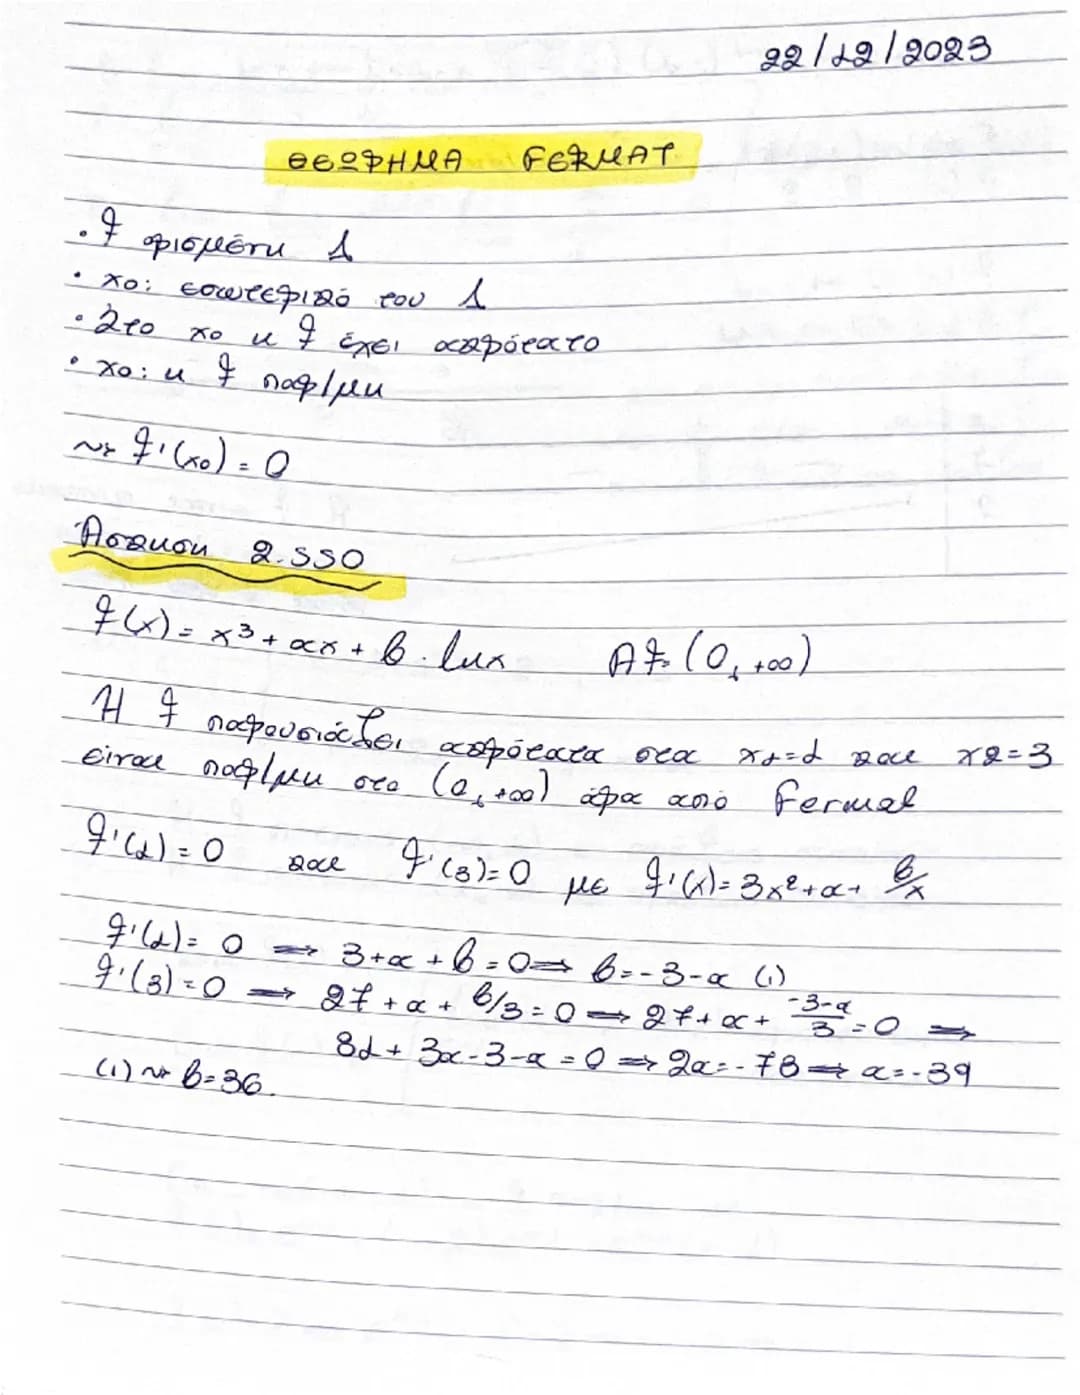 22/12/2023
ΘΕΩΡΗΜΑ FERMAT
• f ορισμένη Δ
• xo: εσωτερικό του Δ
• Στο xo η f έχει ακρότατο
• xo: η f παρ/μη
~> f'(xo) = 0
Άσκηση 2.550
f(x) = x³ + αx + β · lnx Af = (0, +∞)
Η f παρουσιάζει ακρότατα στα x1=1 και x2=3
είναι παρ/μη στο (0, +∞) άρα από Fermat
f'(1) = 0 και f'(3) = 0 με f'(x) = 3x² + α + β/x
f'(1) = 0 ⟹ 3 + α + β = 0 ⟹ β = -3 - α (1)
f'(3) = 0 ⟹ 27 + α + β/3 = 0 ⟹ 27 + α + (-3-α)/3 = 0 ⟹
81 + 3α - 3 - α = 0 ⟹ 2α = -78 ⟹ α = -39
(1) ~> β = 36.